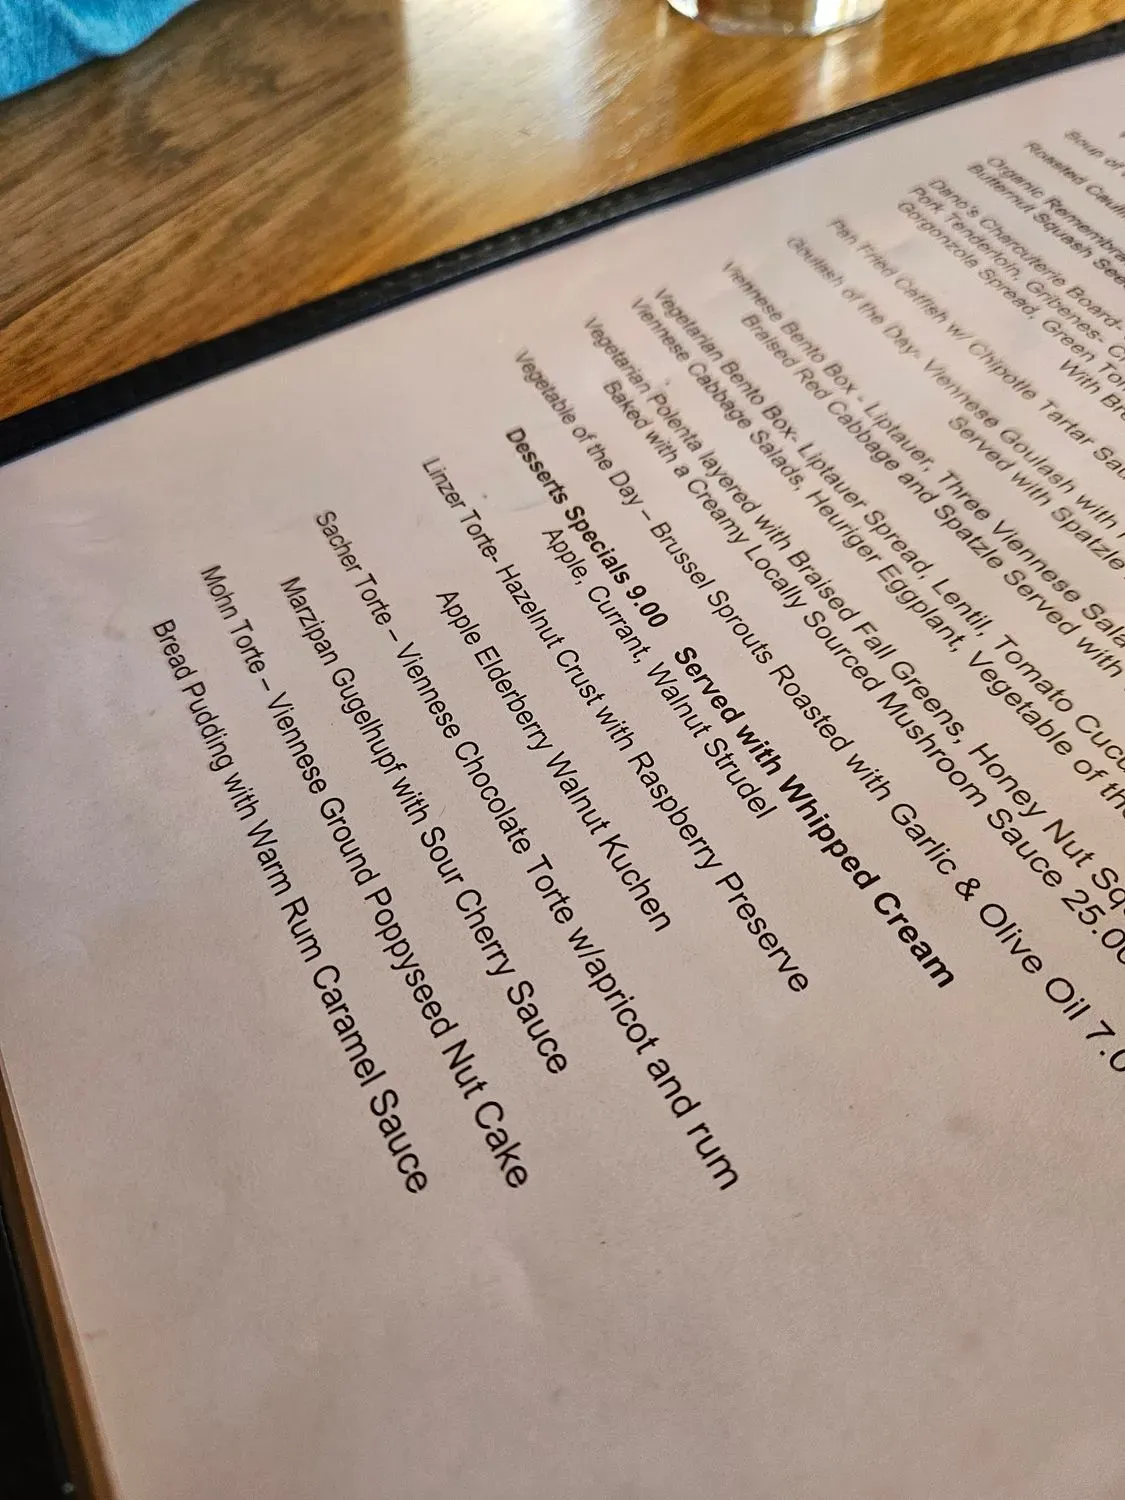 Soup of
Roasted Cauli
Organic Remembra
Butternut Squash See
Dano's Charcuterie Board-
Pork Tenderloin, Gribenes- C
Gorgonzola Spread, Green Tom
With Bre
Pan Fried Catfish w/ Chipotle Tartar Sau
Goulash of the Day- Viennese Goulash with
Served with Spatzle
Viennese Bento Box - Liptauer, Three Viennese Sala
Braised Red Cabbage and Spatzle Served with
Vegetarian Bento Box- Liptauer Spread, Lentil, Tomato Cucu
Viennese Cabbage Salads, Heuriger Eggplant, Vegetable of th
Vegetarian Polenta layered with Braised Fall Greens, Honey Nut Squ
Baked with a Creamy Locally Sourced Mushroom Sauce 25.00
Vegetable of the Day – Brussel Sprouts Roasted with Garlic & Olive Oil 7.0
Desserts Specials 9.00 Served with Whipped Cream
Apple, Currant, Walnut Strudel
Linzer Torte- Hazelnut Crust with Raspberry Preserve
Apple Elderberry Walnut Kuchen
Sacher Torte – Viennese Chocolate Torte w/apricot and rum
Marzipan Gugelhupf with Sour Cherry Sauce
Mohn Torte – Viennese Ground Poppyseed Nut Cake
Bread Pudding with Warm Rum Caramel Sauce